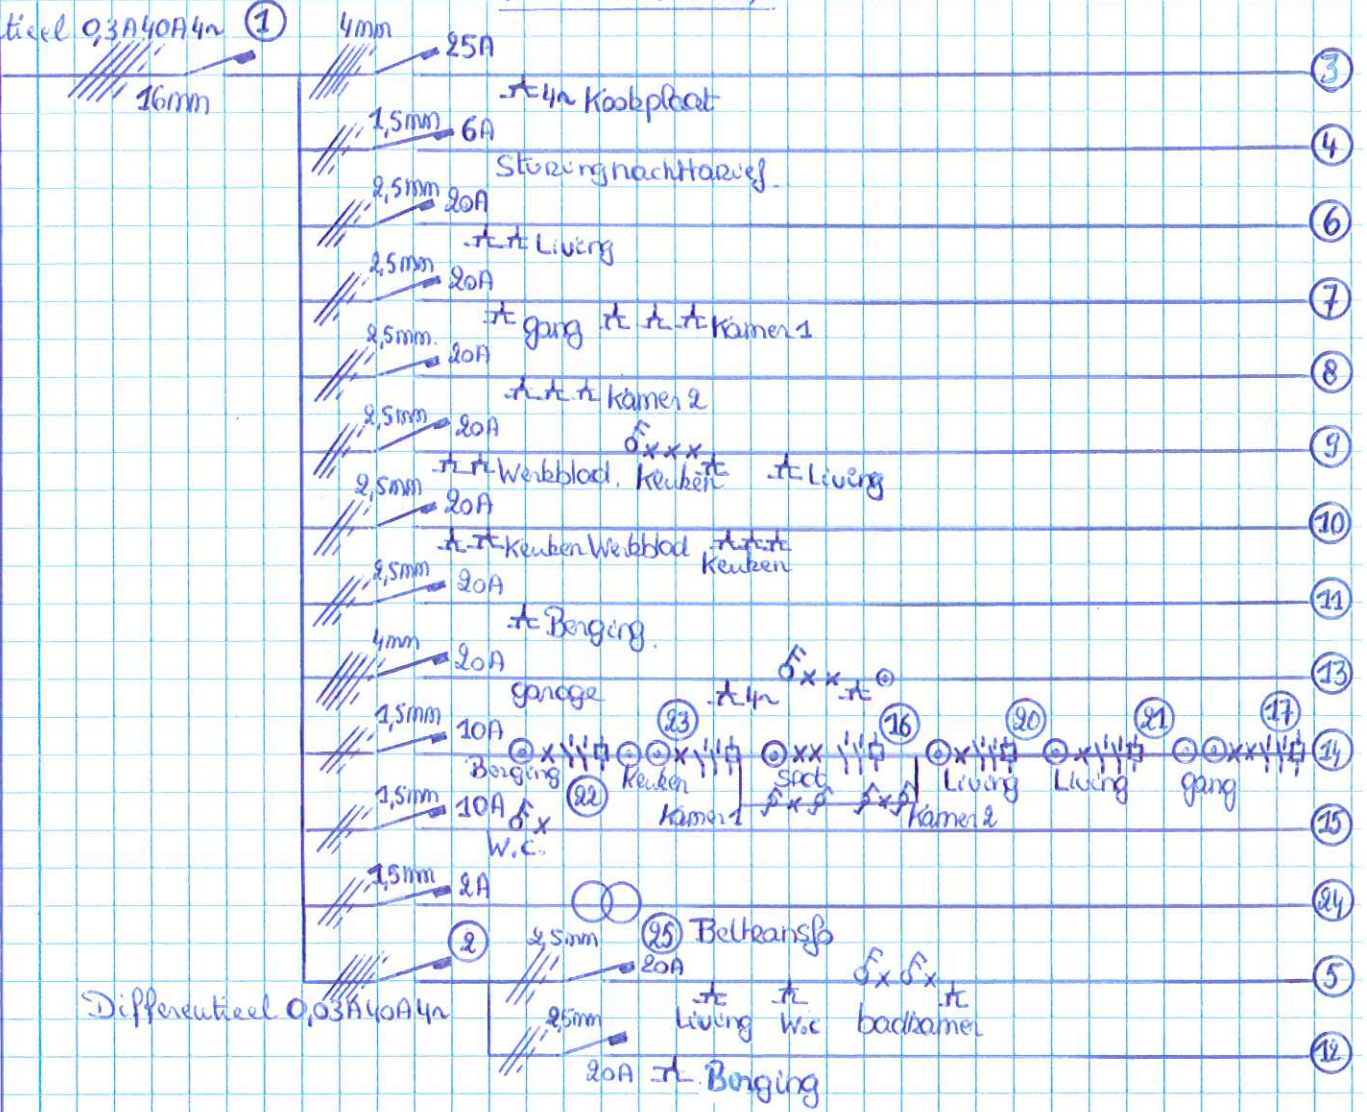 tieel 0,3A40A4~ 1 4mm 25A
16mm
4~ Kookplaat 3
1,5mm 6A 4
Sturing nachttarief.
2,5mm 20A 6
Living
2,5mm 20A 7
gang Kamer 1
2,5mm. 20A 8
Kamer 2
2,5mm 20A 9
Werkblad. Keuken Living
2,5mm 20A 10
Keuken Werkblad Keuken
2,5mm 20A 11
Berging.
4mm 20A 13
garage 4~
1,5mm 10A 23 16 20 21 17 14
Berging Keuken Spot Living Living gang
22 Kamer 1 Kamer 2
1,5mm 10A 15
W.C.
1,5mm 2A 24
2 2,5mm 25 Beltransfo
20A 5
Differentieel 0,03A40A4~
Living W.c badkamer
2,5mm 12
20A Berging